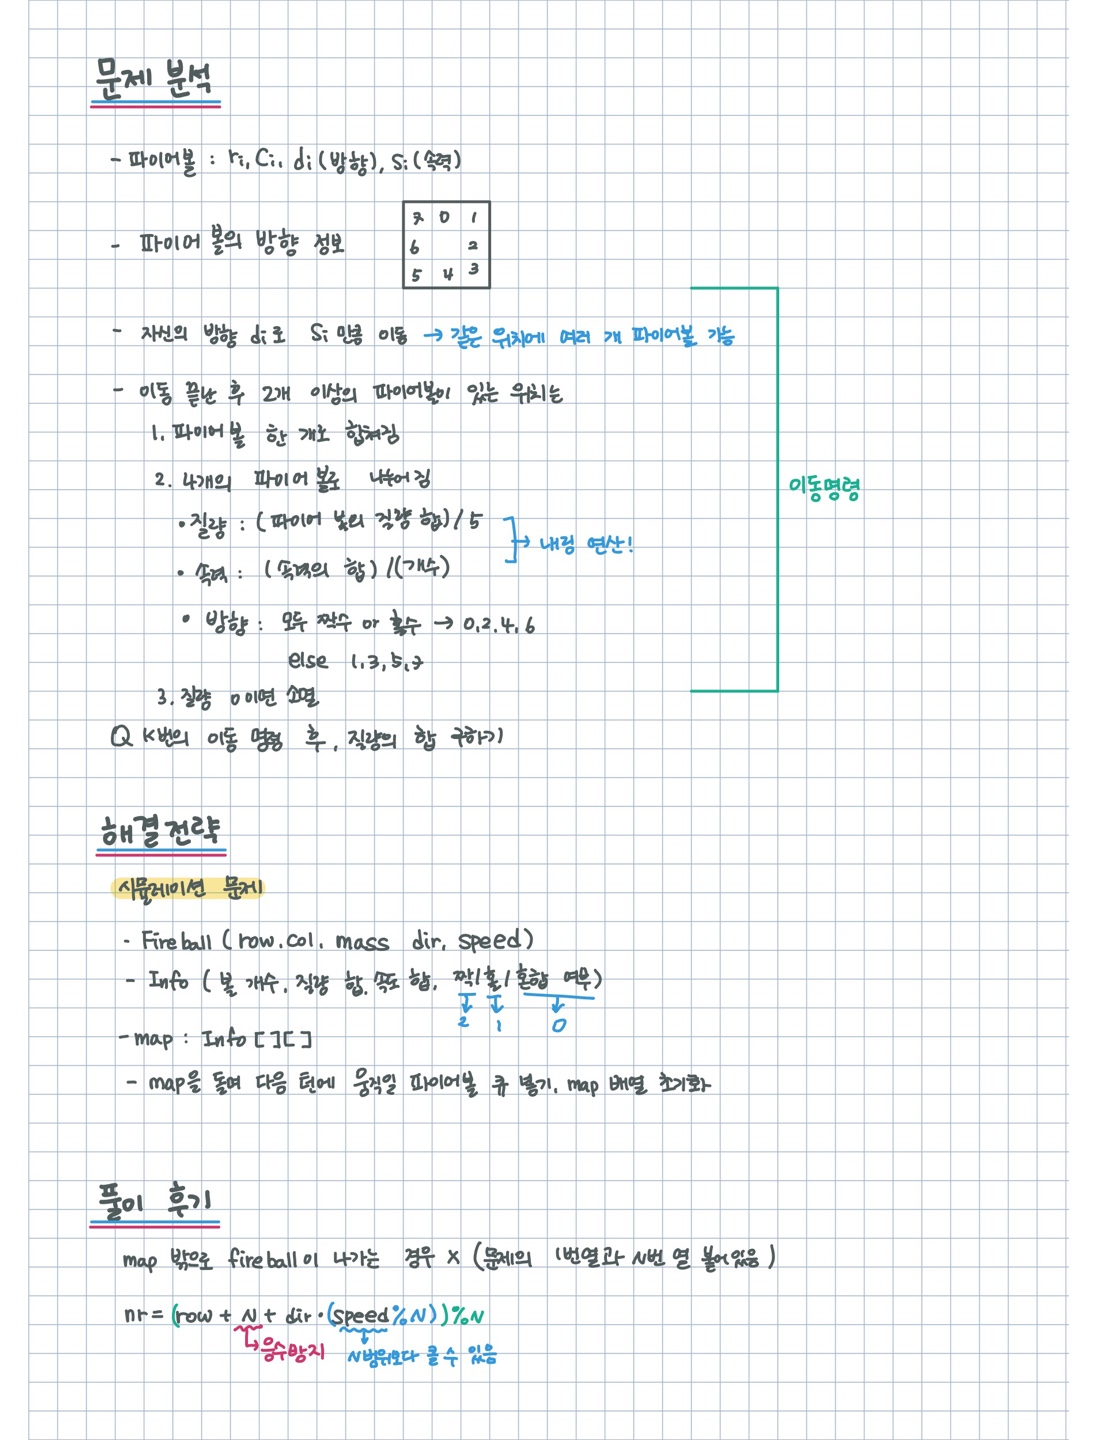 문제 분석
- 파이어볼 : ri, Ci, di(방향), Si(속력)
- 파이어 볼의 방향 정보
7 0 1
6 2
5 4 3
- 자신의 방향 di로 Si만큼 이동 → 같은 위치에 여러 개 파이어볼 가능
- 이동 끝난 후 2개 이상의 파이어볼이 있는 위치는
1. 파이어볼 한 개로 합쳐짐
2. 4개의 파이어 볼로 나누어 짐
이동명령
• 질량 : (파이어 볼의 질량 합) / 5
→ 내림 연산!
• 속력 : (속력의 합) / (개수)
• 방향 : 모두 짝수 or 홀수 → 0, 2, 4, 6
else 1, 3, 5, 7
3. 질량 0이면 소멸
Q K번의 이동 명령 후, 질량의 합 구하기
해결전략
시뮬레이션 문제
- Fireball (row, col, mass dir, speed)
- Info (볼 개수, 질량 합, 속도 합, 짝/홀/혼합 여부)
2 1 0
- map : Info [][]
- map을 돌며 다음 턴에 움직일 파이어볼 큐 넣기, map 배열 초기화
풀이 후기
map 밖으로 fireball이 나가는 경우 X (문제의 1번열과 N번 열 붙어있음)
nr = (row + N + dir · (speed % N)) % N
→ 음수방지 N범위보다 클 수 있음